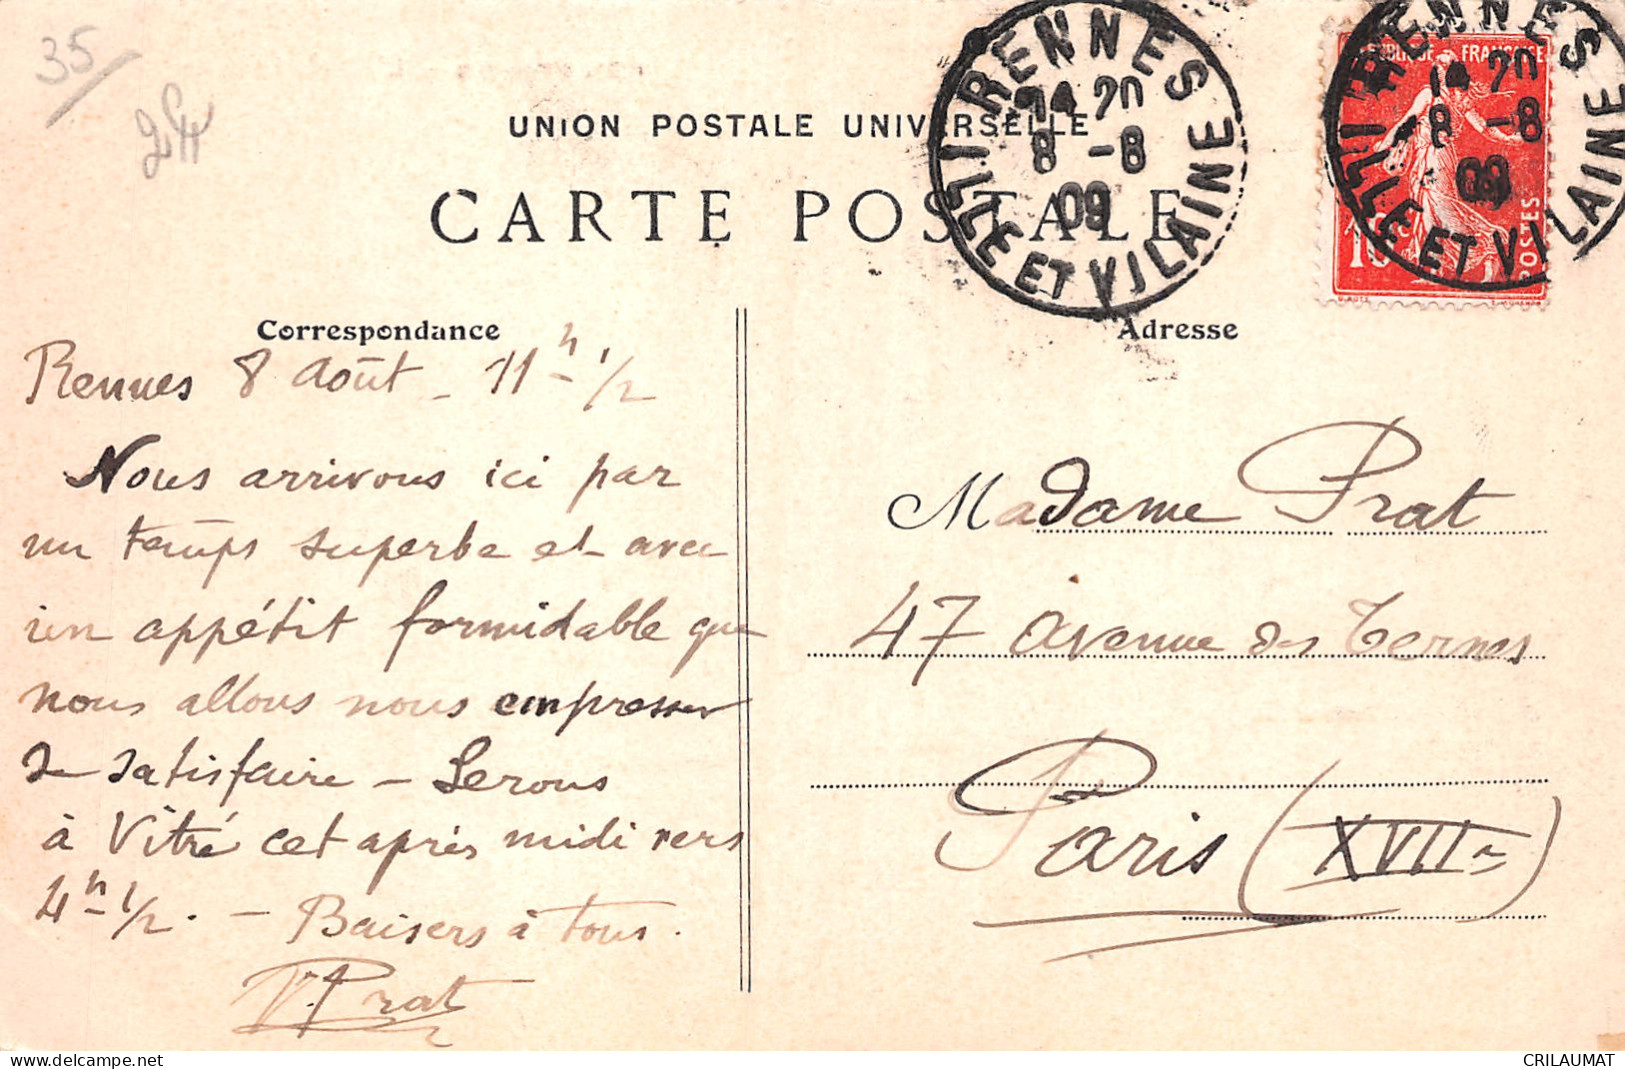 35/
UNION POSTALE UNIVERSELLE
CARTE POSTALE
RENNES
14 20
8 -8
09
ILLE ET VILAINE
REPUBLIQUE FRANÇAISE
10c
POSTES
RENNES
14 20
8 -8
09
ILLE ET VILAINE
Correspondance
Rennes 8 Août - 11h 1/2
Nous arrivons ici par
un temps superbe et avec
un appétit formidable que
nous allons nous empresser
de satisfaire - Serons
à Vitré cet après midi vers
4h 1/2. - Baisers à tous.
V. Prat
Adresse
Madame Prat
47 Avenue des Ternes
Paris (XVIIe)
CRILAUMAT